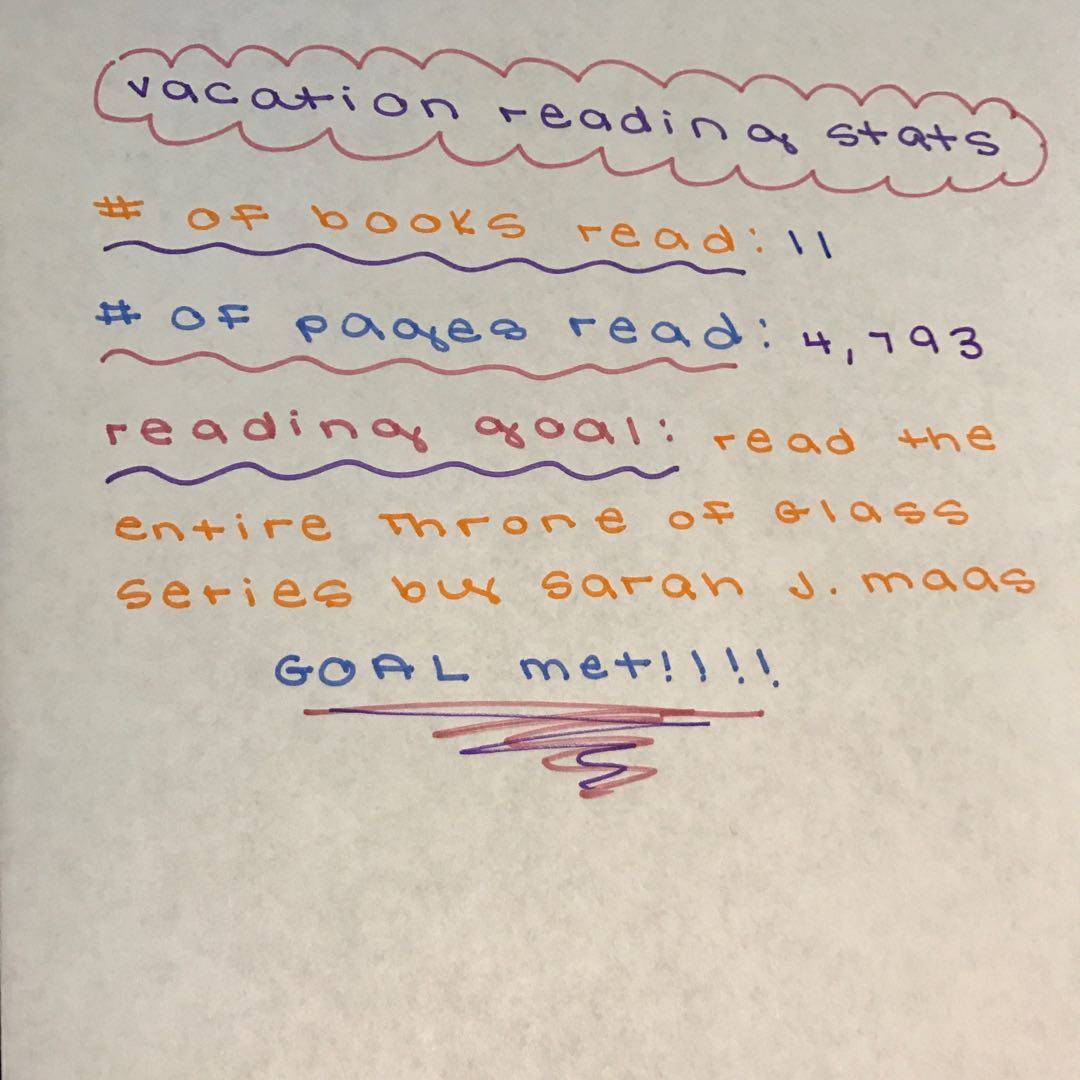 vacation reading stats
# of books read: 11
# of pages read: 4,793
reading goal: read the
entire Throne of Glass
series by sarah J. maas
GOAL met!!!!